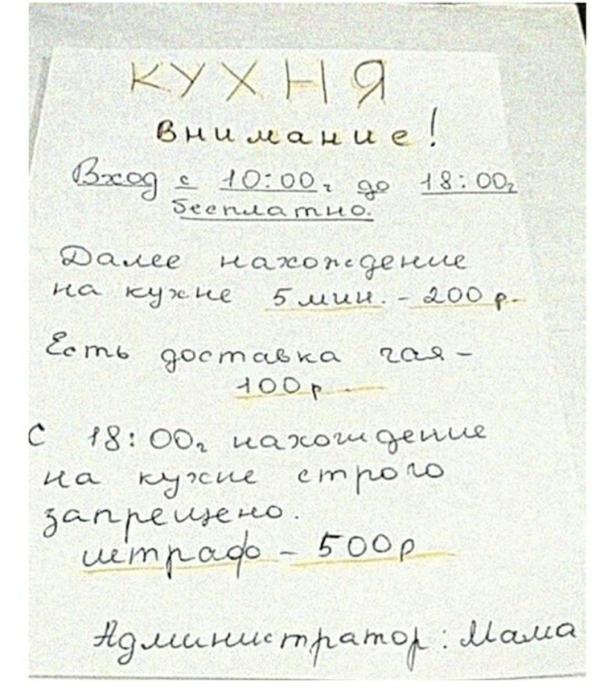 КУХНЯ
внимание!
Вход с 10:00ч до 18:00ч
бесплатно.
Далее нахождение
на кухне 5 мин. - 200 р.
Есть доставка чая -
100р
С 18:00ч нахождение
на кухне строго
запрещено.
штраф - 500р
Администратор: Мама